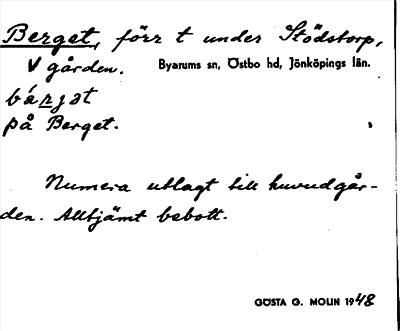 Berget, förr t under Stödstorp,
V gården. Byarums sn, Östbo hd, Jönköpings län.
bárjət
på Berget.
Numera utlagt till huvudgår-
den. Alltjämt bebott.
GÖSTA G. MOLIN 1948